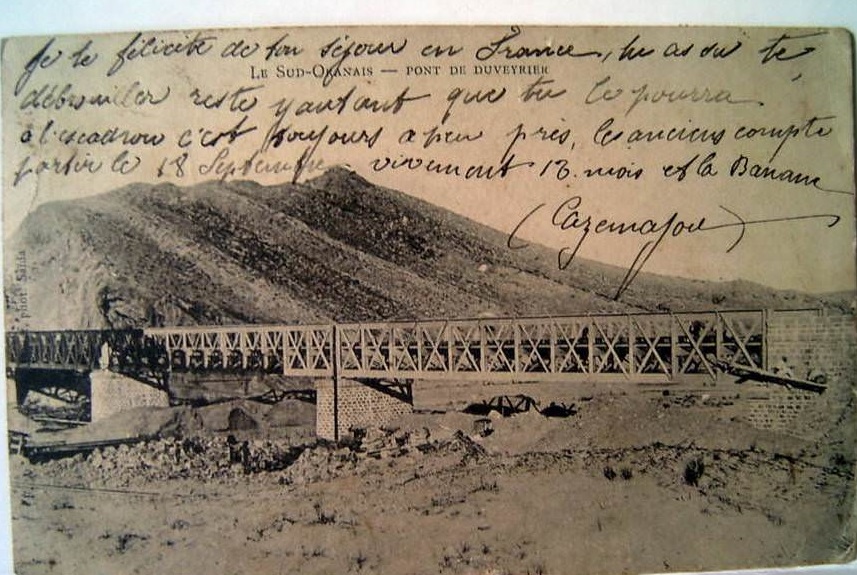 Je te félicite de ton séjour en France, tu as du te
LE SUD-ORANAIS — PONT DE DUVEYRIER
débrouiller reste y autant que tu le pourra
à l'escadron c'est toujours a peu près, les anciens compte
partir le 18 Septembre vivement 13 mois et la Banane
(Cazemajou)
phot Saïda